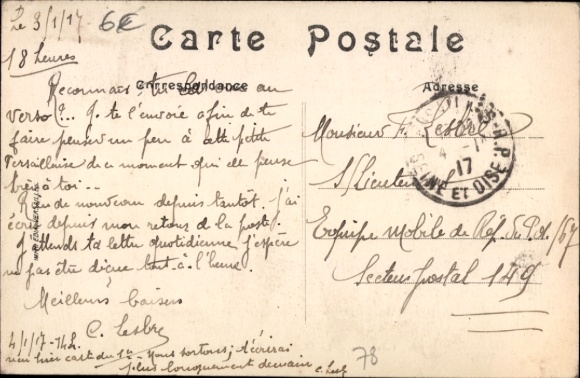 Le 3/1/17
6€
Carte Postale
18 heures
Correspondance
Adresse
Reconnais tu au
verso ?... Je te l'envoie afin de te
faire penser un peu à cette petite
Versaillaise de ce moment qui pense
bien à toi...
Rien de nouveau depuis tantôt. J'ai
écrit depuis mon retour de la poste.
J'attends ta lettre quotidienne j'espère
ne pas être déçue tout à l'heure.
Meilleurs baisers
C. Lesbre
4/1/17 - 14h.
hier carte du 1er - Nous sortons; t'écrirai
plus longuement demain
Monsieur F. Lesbre
S/Lieutenant
Equipe Mobile de Rép. du P.A/67
Secteur Postal 149
R.P.
4 - 1
17
SEINE ET OISE
78